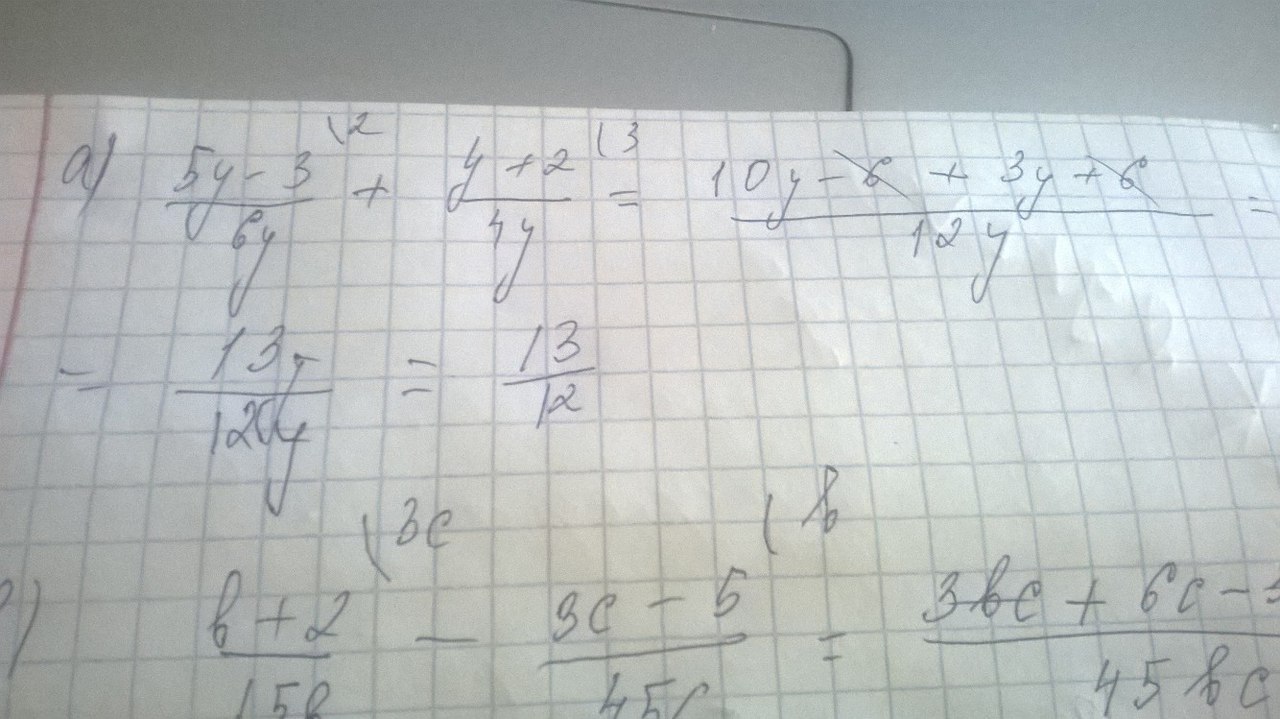 а) (5y - 3)/(6y) \2 + (y + 2)/(4y) \3 = (10y - 6 + 3y + 6)/(12y) =
= (13y)/(12y) = 13/12
(b + 2)/(15b) \3c - (3c - 5)/(45c) \b = (3bc + 6c -)/(45bc)